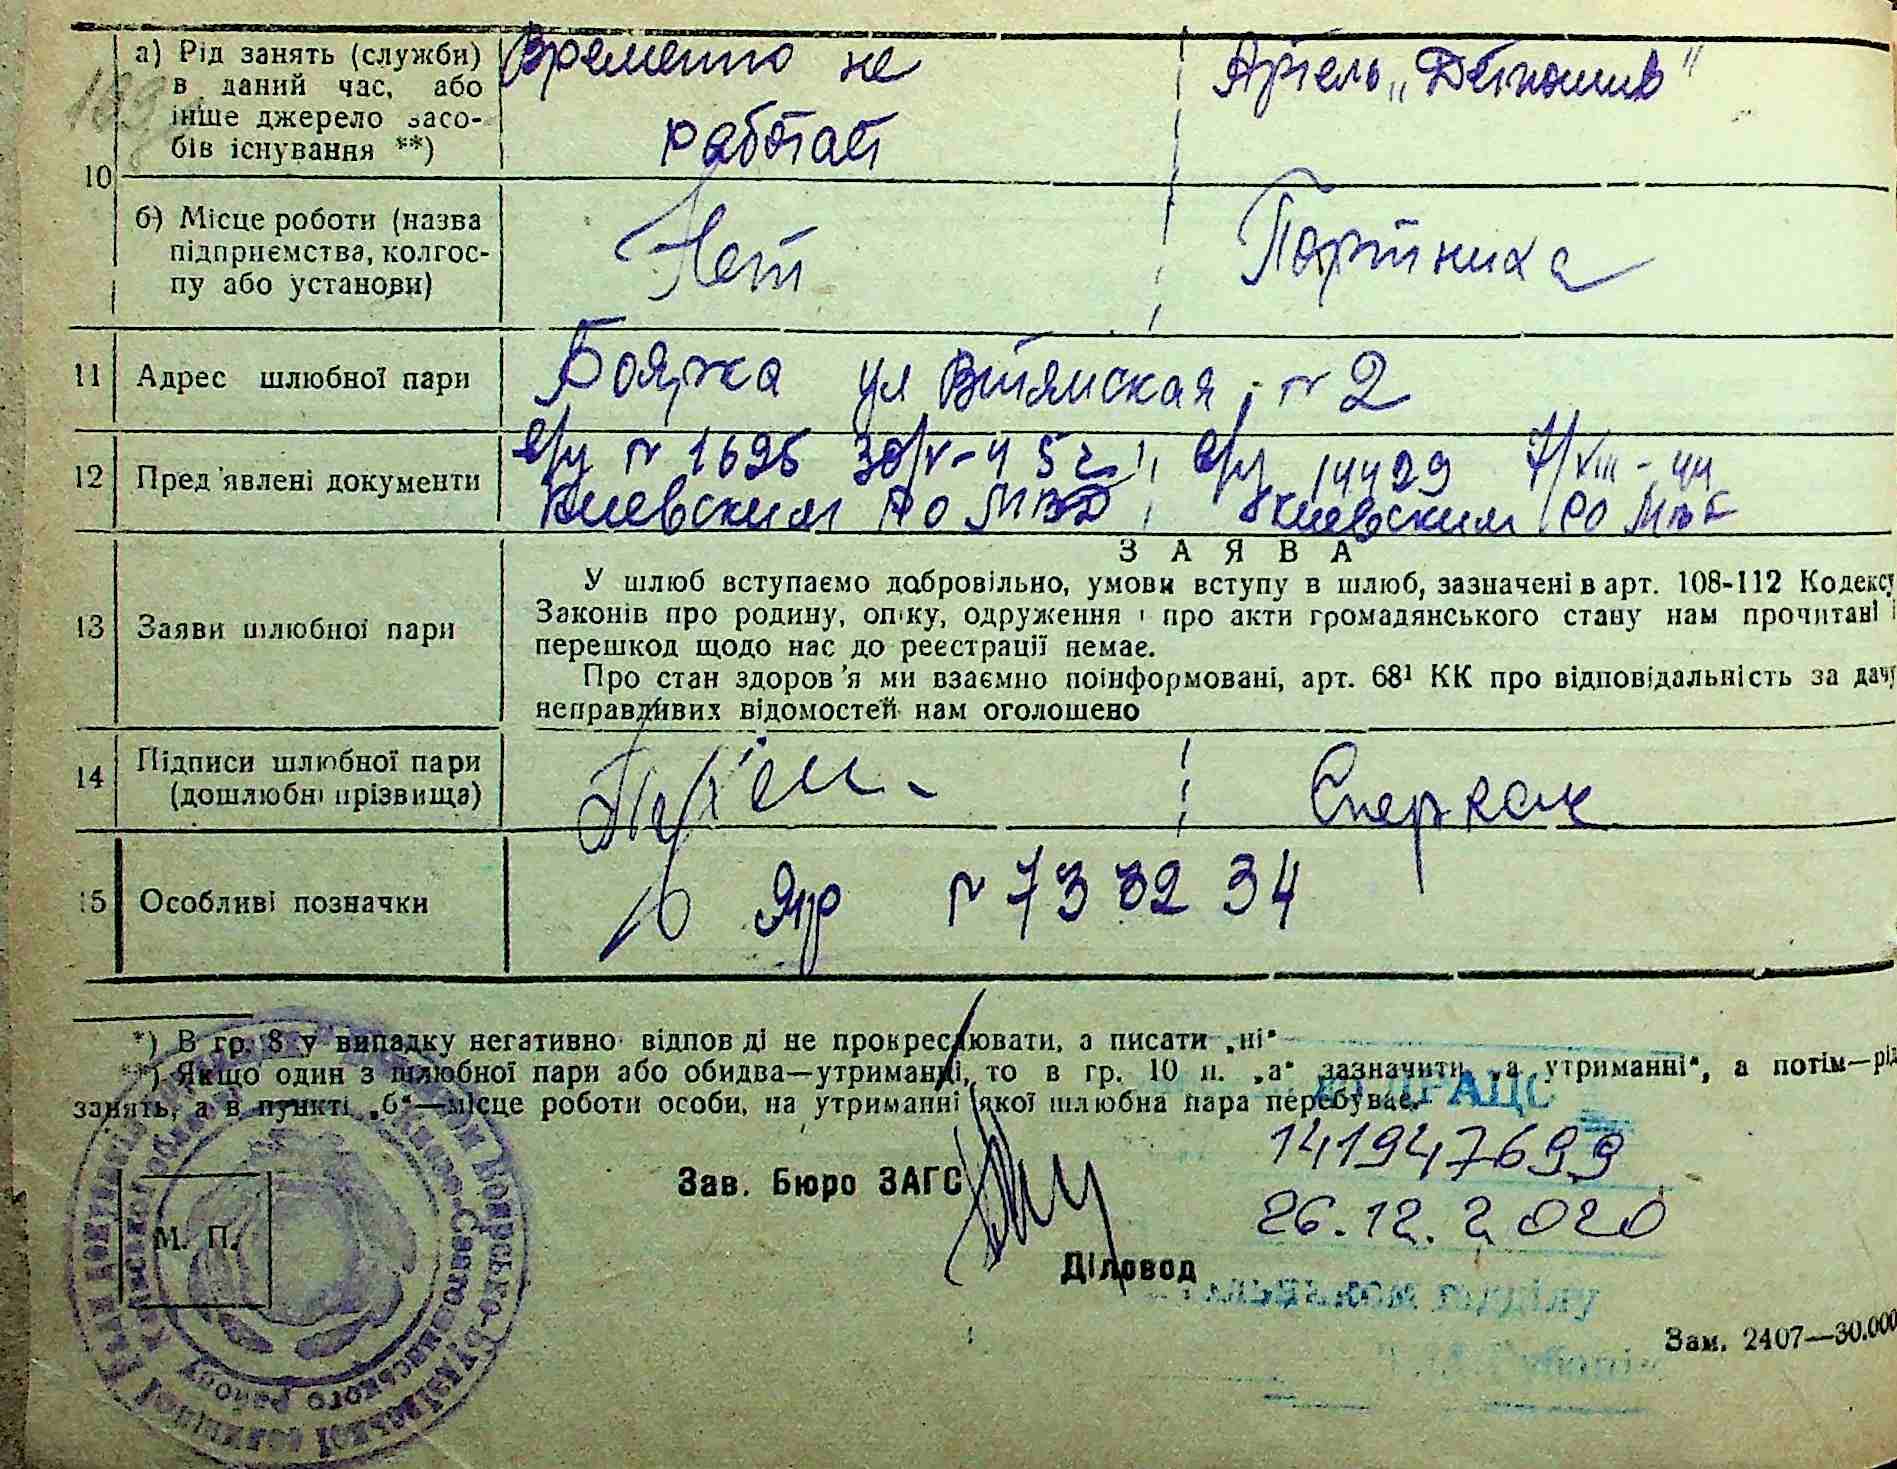 а) Рід занять (служби)
в даний час, або
інше джерело засо-
бів існування **)
Временно не
работает
Артель „Детпошив"
10
б) Місце роботи (назва
підприємства, колгос-
пу або установи)
Нет
Портниха
11 Адрес шлюбної пари
Боярка ул №2
12 Пред'явлені документи
№ 1695 30/V-45г.
Киевским РО МВД
14429 7/VIII-44
Киевским РО
ЗАЯВА
13 Заяви шлюбної пари
У шлюб вступаємо добровільно, умови вступу в шлюб, зазначені в арт. 108-112 Кодексу
Законів про родину, опіку, одруження і про акти громадянського стану нам прочитані і
перешкод щодо нас до реєстрації немає.
Про стан здоров'я ми взаємно поінформовані, арт. 68¹ КК про відповідальність за дачу
неправдивих відомостей нам оголошено
14 Підписи шлюбної пари
(дошлюбні прізвища)
15 Особливі позначки
№ 733234
*) В гр. 8 у випадку негативної відповіді не прокреслювати, а писати „ні"
**) Якщо один з шлюбної пари або обидва—утриманці, то в гр. 10 п. „а" зазначити „на утриманні", а потім—рід
занять, а в пункті „б"—місце роботи особи, на утриманні якої шлюбна пара перебуває.
ДРАЦС
141947699
26.12.2020
Зав. Бюро ЗАГС
М. П.
Діловод
відділу
Зам. 2407—30.000